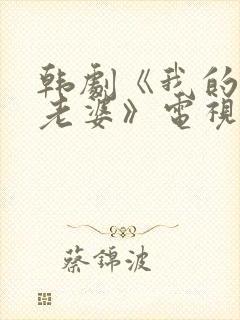 韩劇《我的
老婆》電視
蔡錦波